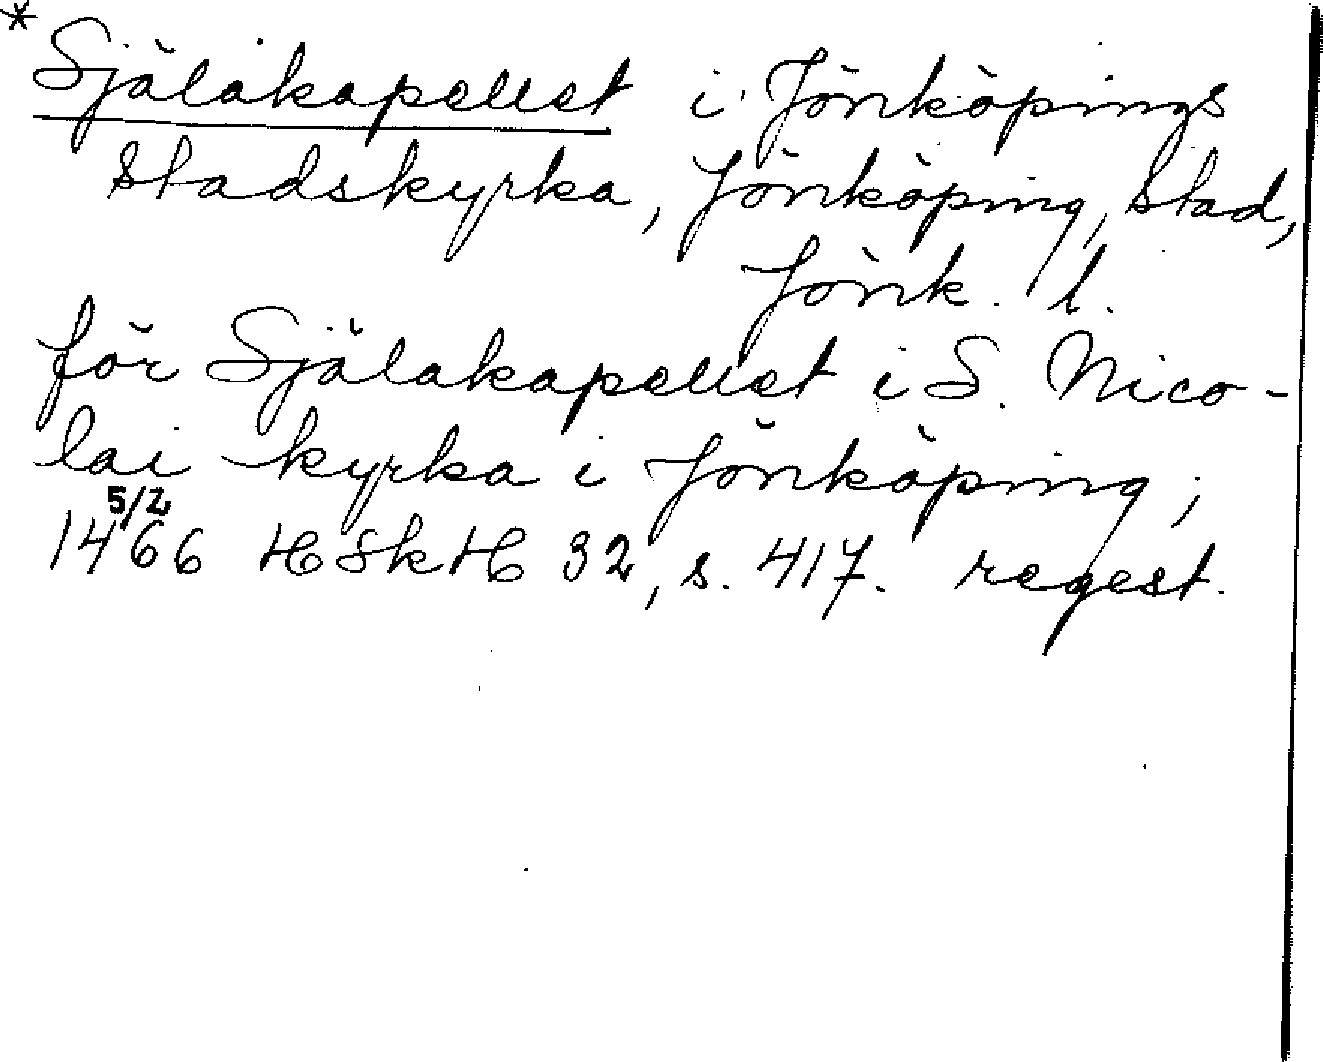 * Själakapellet i Jönköpings
stadskyrka, Jönköping, stad,
Jönk. l.
för Själakapellet i S. Nico-
lai kyrka i Jönköping;
5/2
1466 HSkH 32, s. 417. regest.